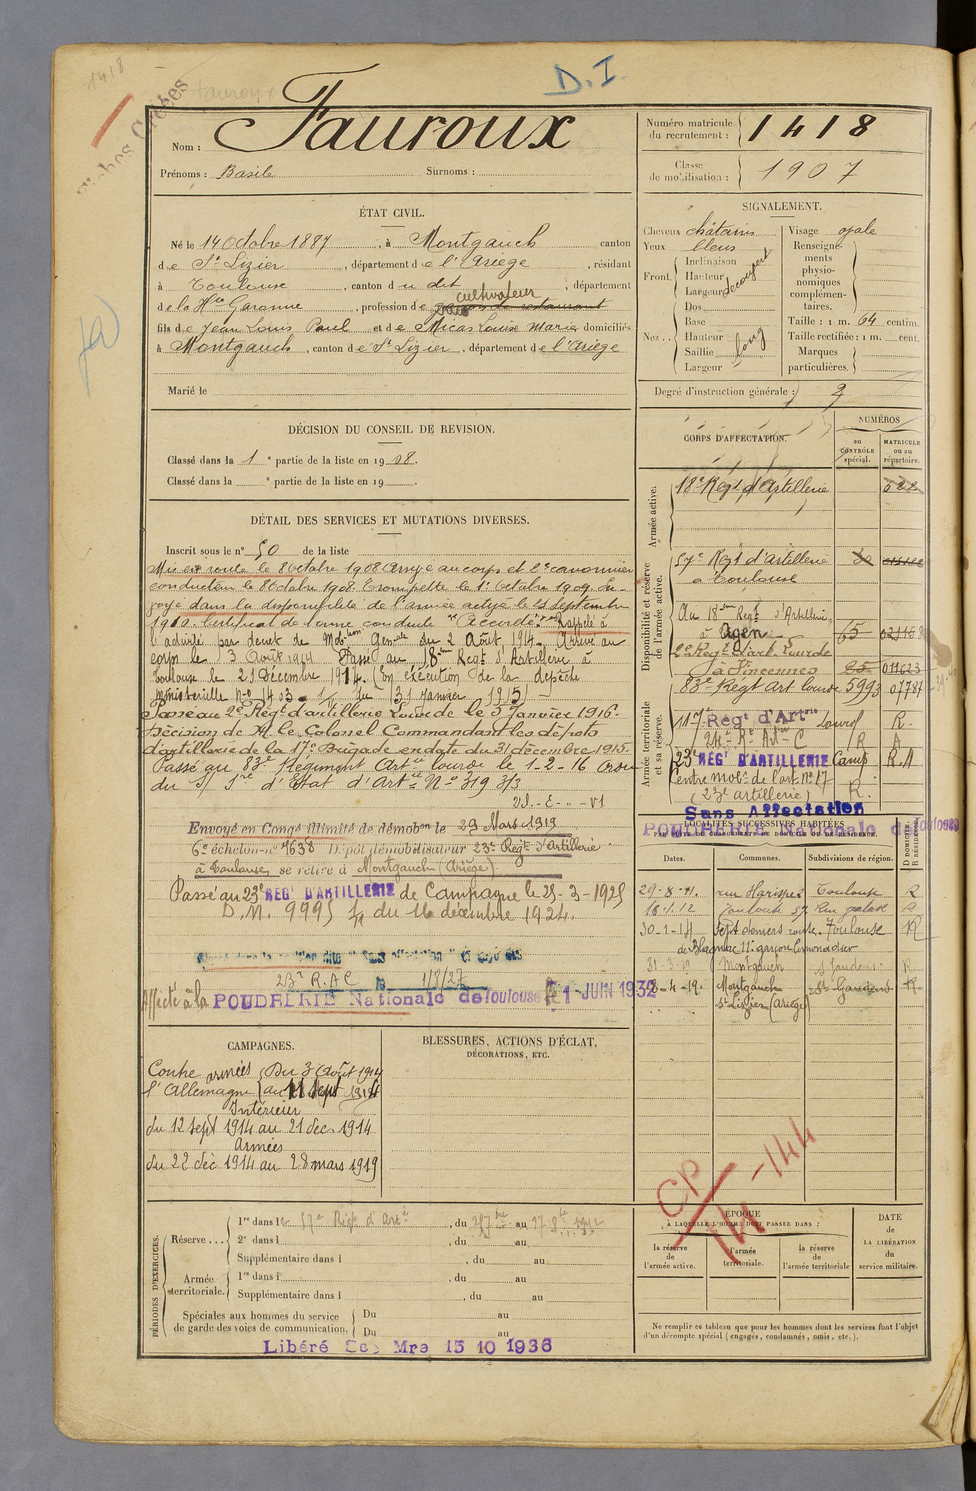 1418
D.I.
Nom : Fauroux
Prénoms : Basile Surnoms :
Numéro matricule du recrutement : 1418
Classe de mobilisation : 1907
ÉTAT CIVIL.
Né le 14 Octobre 1887, à Montgauch canton
de St Lizier, département de l'Ariège, résidant
à Toulouse, canton du dit, département
cultivateur
de la Hte Garonne, profession de garçon de restaurant
fils de Jean Louis Paul et de Micas Louise Marie domiciliés
à Montgauch, canton de St Lizier, département de l'Ariège
Marié le
SIGNALEMENT.
Cheveux châtains
Yeux bleus
Front. Inclinaison
Hauteur
Largeur découvert
Nez .. Dos
Base
Hauteur
Saillie long
Largeur
Visage ovale
Renseignements physionomiques complémentaires.
Taille : 1 m. 64 centim.
Taille rectifiée : 1 m. cent.
Marques particulières.
Degré d'instruction générale : 2
DÉCISION DU CONSEIL DE REVISION.
Classé dans la 1e partie de la liste en 1908.
Classé dans la e partie de la liste en 19 .
DÉTAIL DES SERVICES ET MUTATIONS DIVERSES.
Inscrit sous le n° 50 de la liste
Mis en route le 8 Octobre 1908 Arrivé au corps et 2e canonnier
conducteur le 8 Octobre 1908. Trompette le 1er Octobre 1909. En-
voyé dans la disponibilité de l'armée active le 25 septembre
1910. Certificat de bonne conduite "Accordé." Rappelé à
l'activité par décret de Mobtion Génle du 2 Août 1914. Arrivé au
corps le 3 Août 1914 Passé au 18eme Regt d'Artillerie à
Toulouse le 23 Décembre 1914. (En exécution de la dépêche
ministérielle no 1403 - 1/3 du 31 Janvier 1915) -
Passé au 2e Régt d'artillerie Lourde le 5 Janvier 1916.
Décision de M. le Colonel Commandant les dépots
d'artillerie de la 17e Brigade en date du 31 décembre 1915.
Passé au 83e Régiment Artie lourde le 1-2-16 Ordre
du S/Sre d'Etat d'Artie No 319 3/3
Envoyé en Congé illimité de démobon le 29 Mars 1919
6e échelon - no 7638 Dépot démobilisateur 23e Regt d'Artillerie
à Toulouse, se retire à Montgauch (Ariège)
Passé au 23e RÉGt D'ARTILLERIE de Campagne le 25-3-1925
D.M. 9995 1/4 du 16 décembre 1924.
23e R.A.C le 1/8/27
Affecté à la POUDRERIE Nationale de Toulouse le 1 JUIN 1932
CORPS D'AFFECTATION.
NUMÉROS
au CONTRÔLE spécial.
MATRICULE ou au répertoire.
Armée active.
18e Régt d'Artillerie 622
Disponibilité et réserve de l'armée active.
57e Regt d'artillerie
à Toulouse
Au 18eme Regt d'Artillerie
à Agen 65
2e Regt d'art. Lourde
à Vincennes 25 011623
83e Régt Art lourde 5993 07787
Armée territoriale et sa réserve.
117e Régt d'Artie Lourd R.
24e Rt Artie C R A
23e RÉGt D'ARTILLERIE Camp R.A
Centre mobe de l'art. no 17
(23e artillerie) R.
Sans Affectation
POUDRERIE Nationale de Toulouse
LOCALITÉS SUCCESSIVES HABITÉES
D DOMICILE R RÉSIDENCE
Dates. Communes. Subdivisions de région.
29-8-11. rue Harispes Toulouse R
16-1-12 Toulouse 57 Rue palass R
30-1-14 Sept deniers route Toulouse R
de Blagnac 11 garçon limonadier
31-3-19 Montgauch St Gaudens R
28-4-19. Montgauch St Gaudens R
St Lizier (Ariège)
CAMPAGNES.
Contre armées Du 3 Août 1914
l'Allemagne au 11 Sept 1914
Intérieur
du 12 sept 1914 au 21 dec. 1914
Armées
du 22 déc 1914 au 28 mars 1919
BLESSURES, ACTIONS D'ÉCLAT,
DÉCORATIONS, ETC.
CP/14-144
PÉRIODES D'EXERCICES.
Réserve ... 1re dans le 57e Régt d'Artie, du au
2e dans l , du au
Supplémentaire dans l , du au
Armée territoriale. 1re dans l , du au
Supplémentaire dans l , du au
Spéciales aux hommes du service de garde des voies de communication. Du au
Du au
Libéré Ser Mre 15 10 1936
ÉPOQUE
À LAQUELLE L'HOMME DOIT PASSER DANS :
la réserve de l'armée active.
l'armée territoriale.
la réserve de l'armée territoriale
DATE de LA LIBÉRATION du service militaire.
Ne remplir ce tableau que pour les hommes dont les services font l'objet
d'un décompte spécial (engagés, condamnés, omis, etc.).